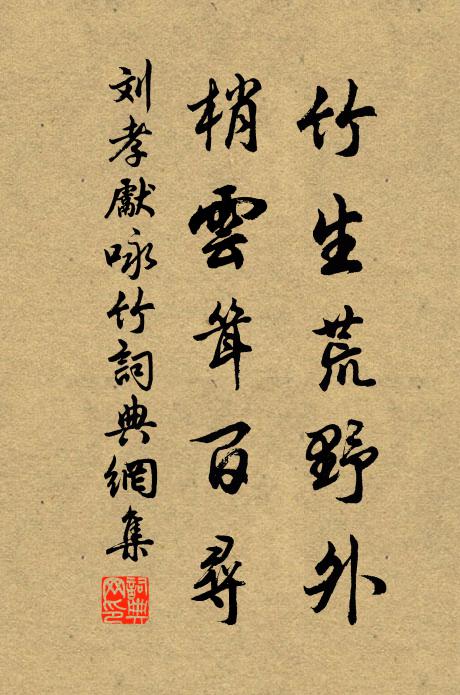 竹生荒野外
梢雲聳百尋
刘孝献咏竹詞典網集
詞典网印